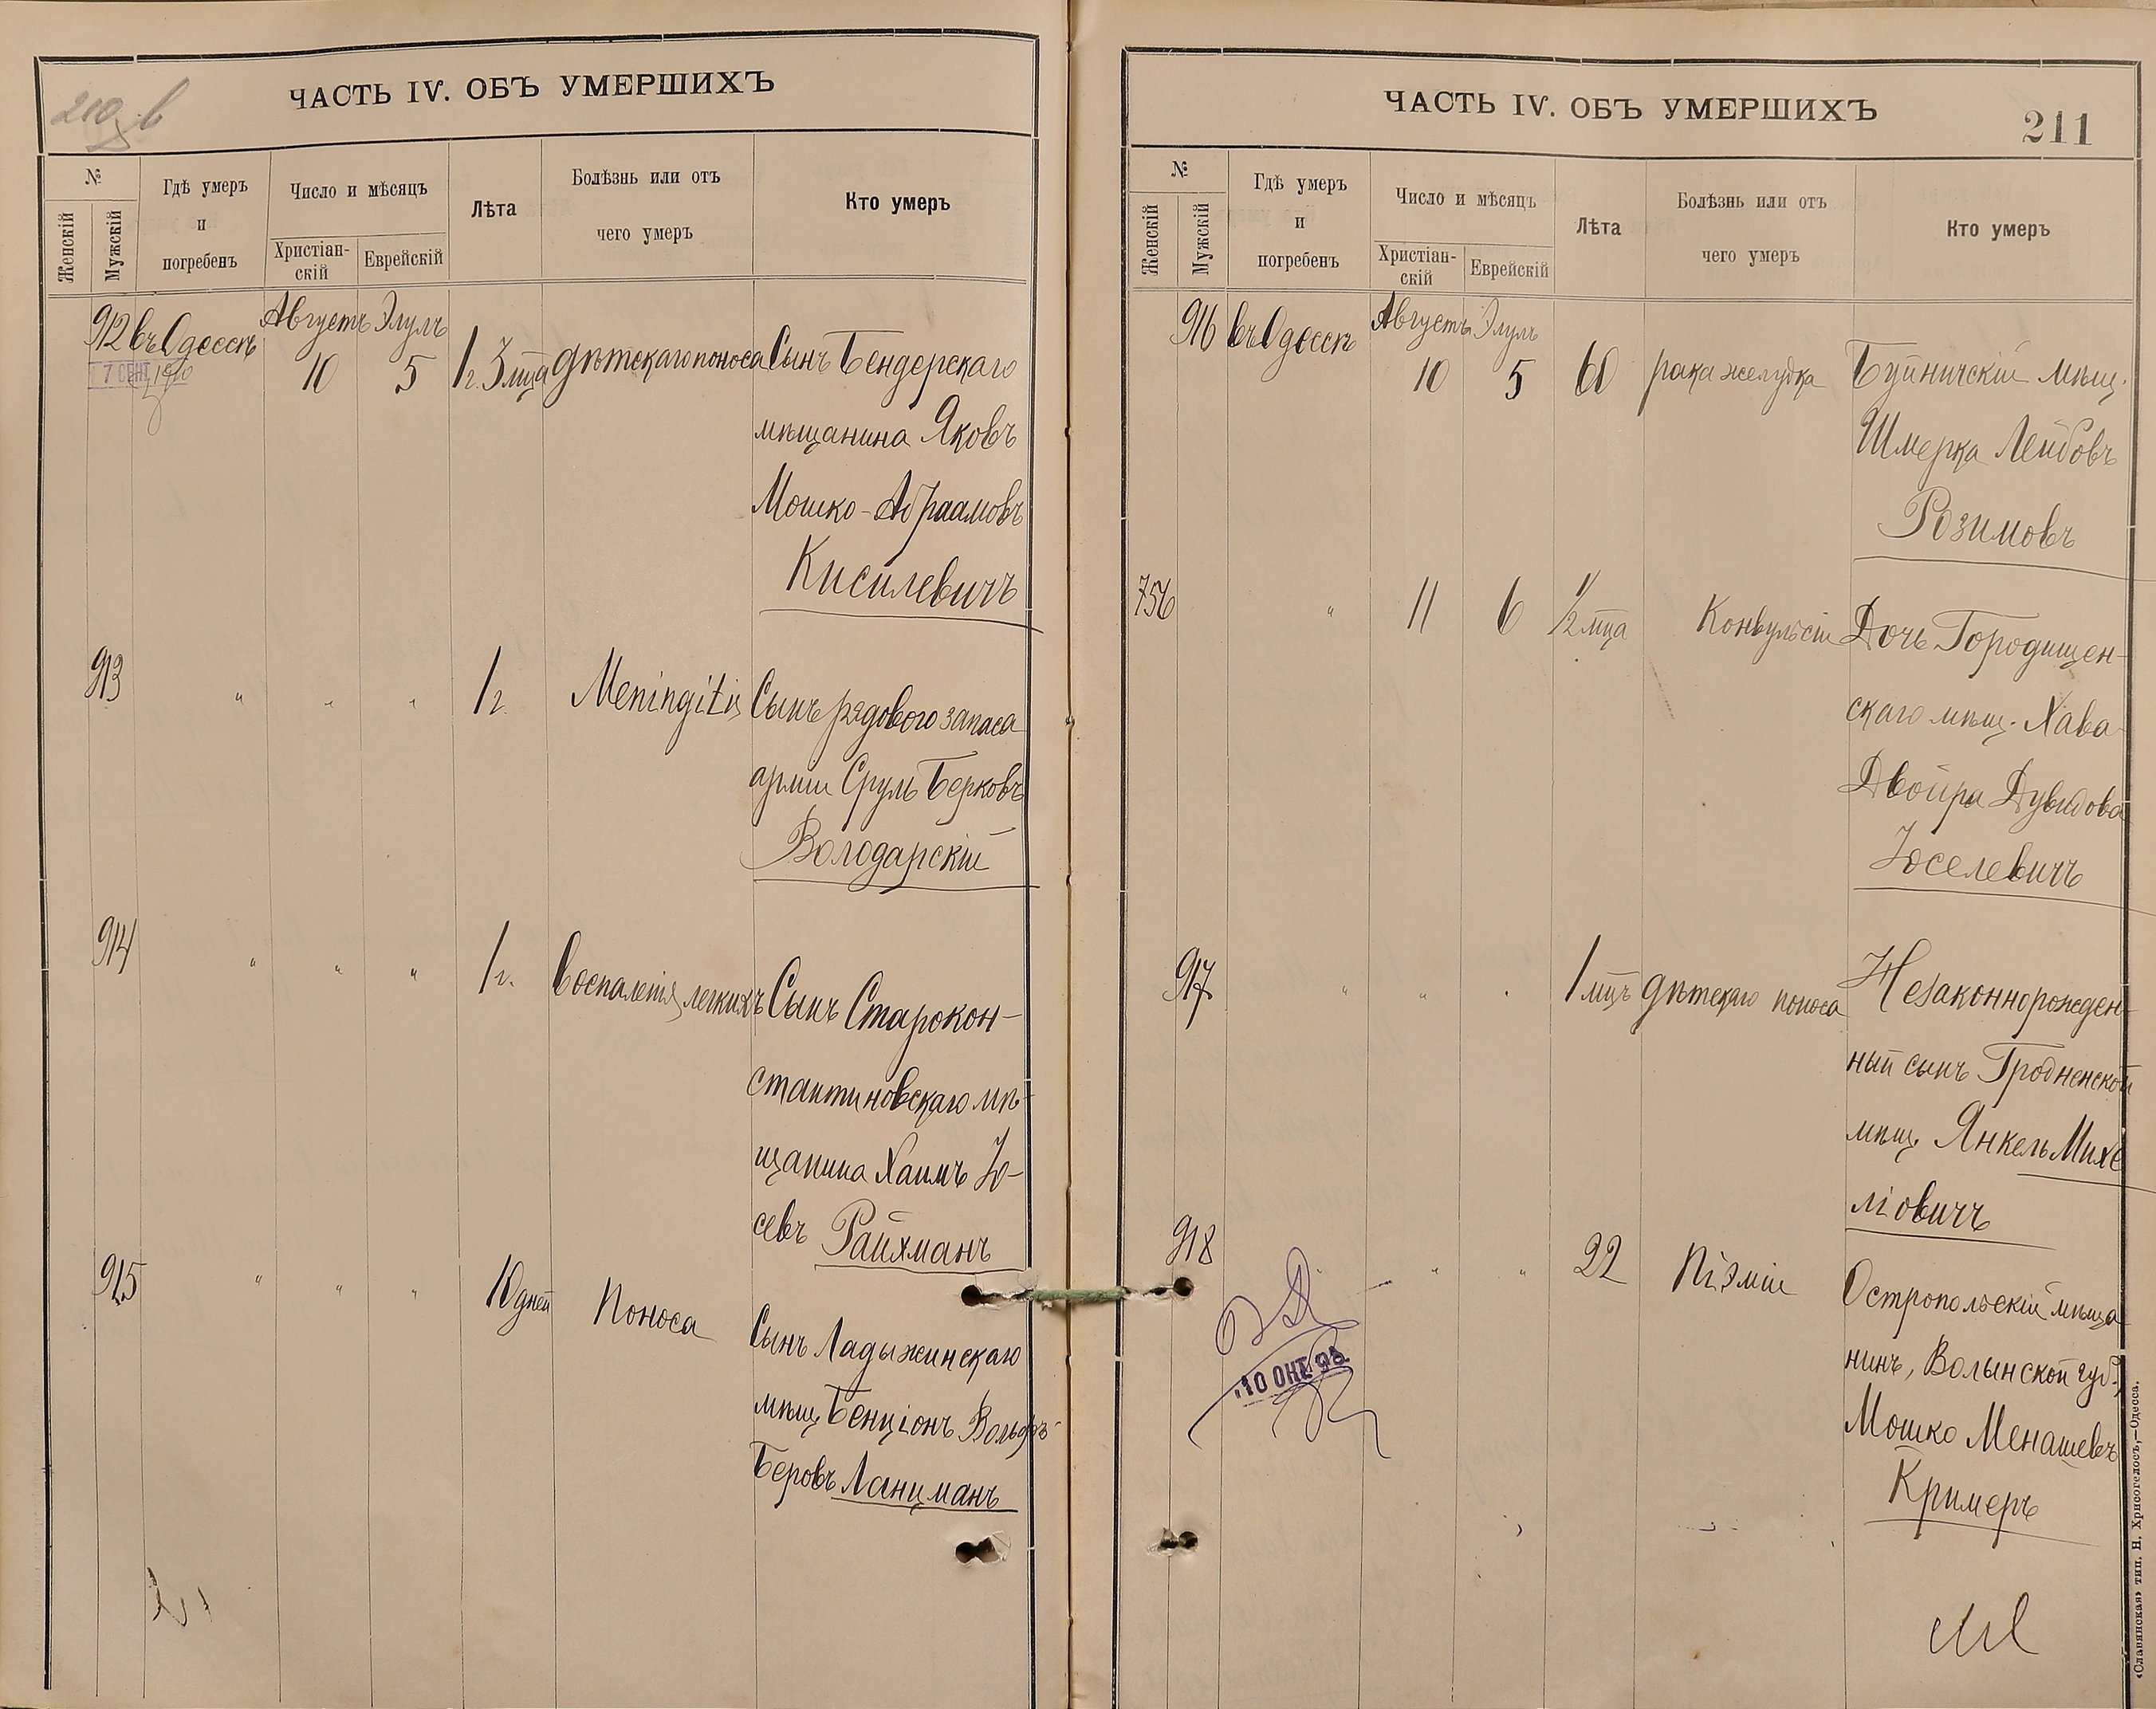 210 в
ЧАСТЬ IV. ОБЪ УМЕРШИХЪ
№
Женскій
Мужскій
Гдѣ умеръ
и
погребенъ
Число и мѣсяцъ
Христіан-
скій
Еврейскій
Лѣта
Болѣзнь или отъ
чего умеръ
Кто умеръ
912 въ Одессѣ Августъ 10 Элулъ 5 1 г. 3 мца дѣтскаго поноса Сынъ Бендерскаго
мѣщанина Яковъ
Мошко-Абраамовъ
Кисилевичъ
913 " " " 1 г. Meningitis Сынъ рядового запаса
арміи Сруль Берковъ
Володарскій
914 " " " 1 г. воспаленія легкихъ Сынъ Старокон-
стантиновскаго мѣ-
щанина Хаимъ Іо-
севъ Райхманъ
915 " " " 10 дней Поноса Сынъ Ладыжинскаго
мѣщ. Бенціонъ Вольфъ-
Беровъ Ланцманъ
ЧАСТЬ IV. ОБЪ УМЕРШИХЪ
211
№
Женскій
Мужскій
Гдѣ умеръ
и
погребенъ
Число и мѣсяцъ
Христіан-
скій
Еврейскій
Лѣта
Болѣзнь или отъ
чего умеръ
Кто умеръ
916 въ Одессѣ Августъ 10 Элулъ 5 60 рака желудка Буйничскій мѣщ.
Шмерка Лейбовъ
Розимовъ
756 " 11 6 1/2 мца Конвульсіи Дочь Городищен-
скаго мѣщ. Хава
Двойра Дувидова
Іоселевичъ
917 " " " 1 мцъ дѣтскаго поноса Незаконнорожден-
ный сынъ Гродненской
мѣщ. Янкель Михе
ліовичъ
918 " " " 22 Піэміи Остропольскій мѣща
нинъ, Волынской губ.,
Мошко Менашевъ
Кримеръ
10 ОКТ. 98
«Славянская» тип. Н. Хрисогелосъ,—Одесса.